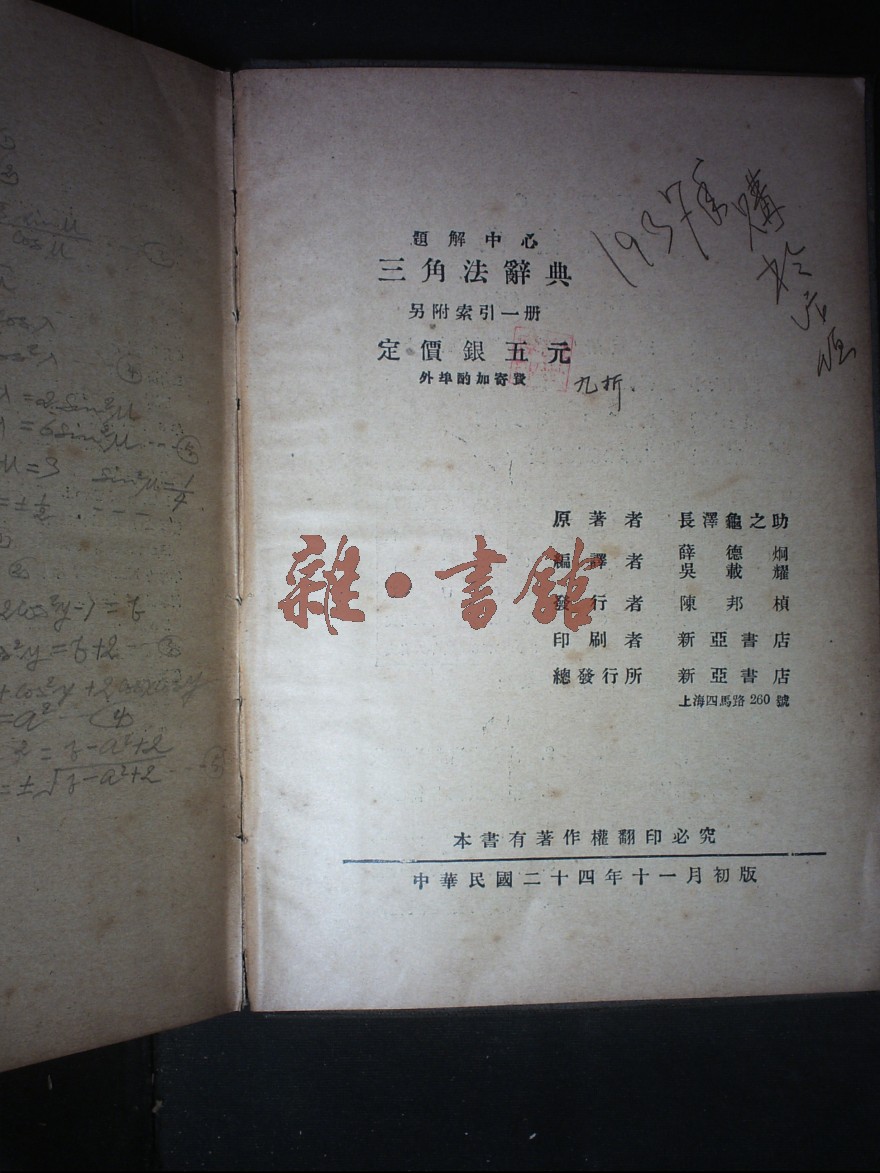 λ = 2 sin²μ
λ = 6 sin²μ ---- ⑤
μ = 3 sin²μ = 1/4
= ± 1/2 . - - - -
②
2cos²y-1) = b
s²y = b+2 -- ③
= a² -- ④
2 = b-a²+2
= ±√b-a²+2 --- ⑤
題解中心
三角法辭典
另附索引一册
定價銀五元
外埠酌加寄費
九折
1937
購
於
原著者 長澤龜之助
編譯者 薛德炯
吳載耀
發行者 陳邦楨
印刷者 新亞書店
總發行所 新亞書店
上海四馬路 260 號
雜·書館
本書有著作權翻印必究
中華民國二十四年十一月初版